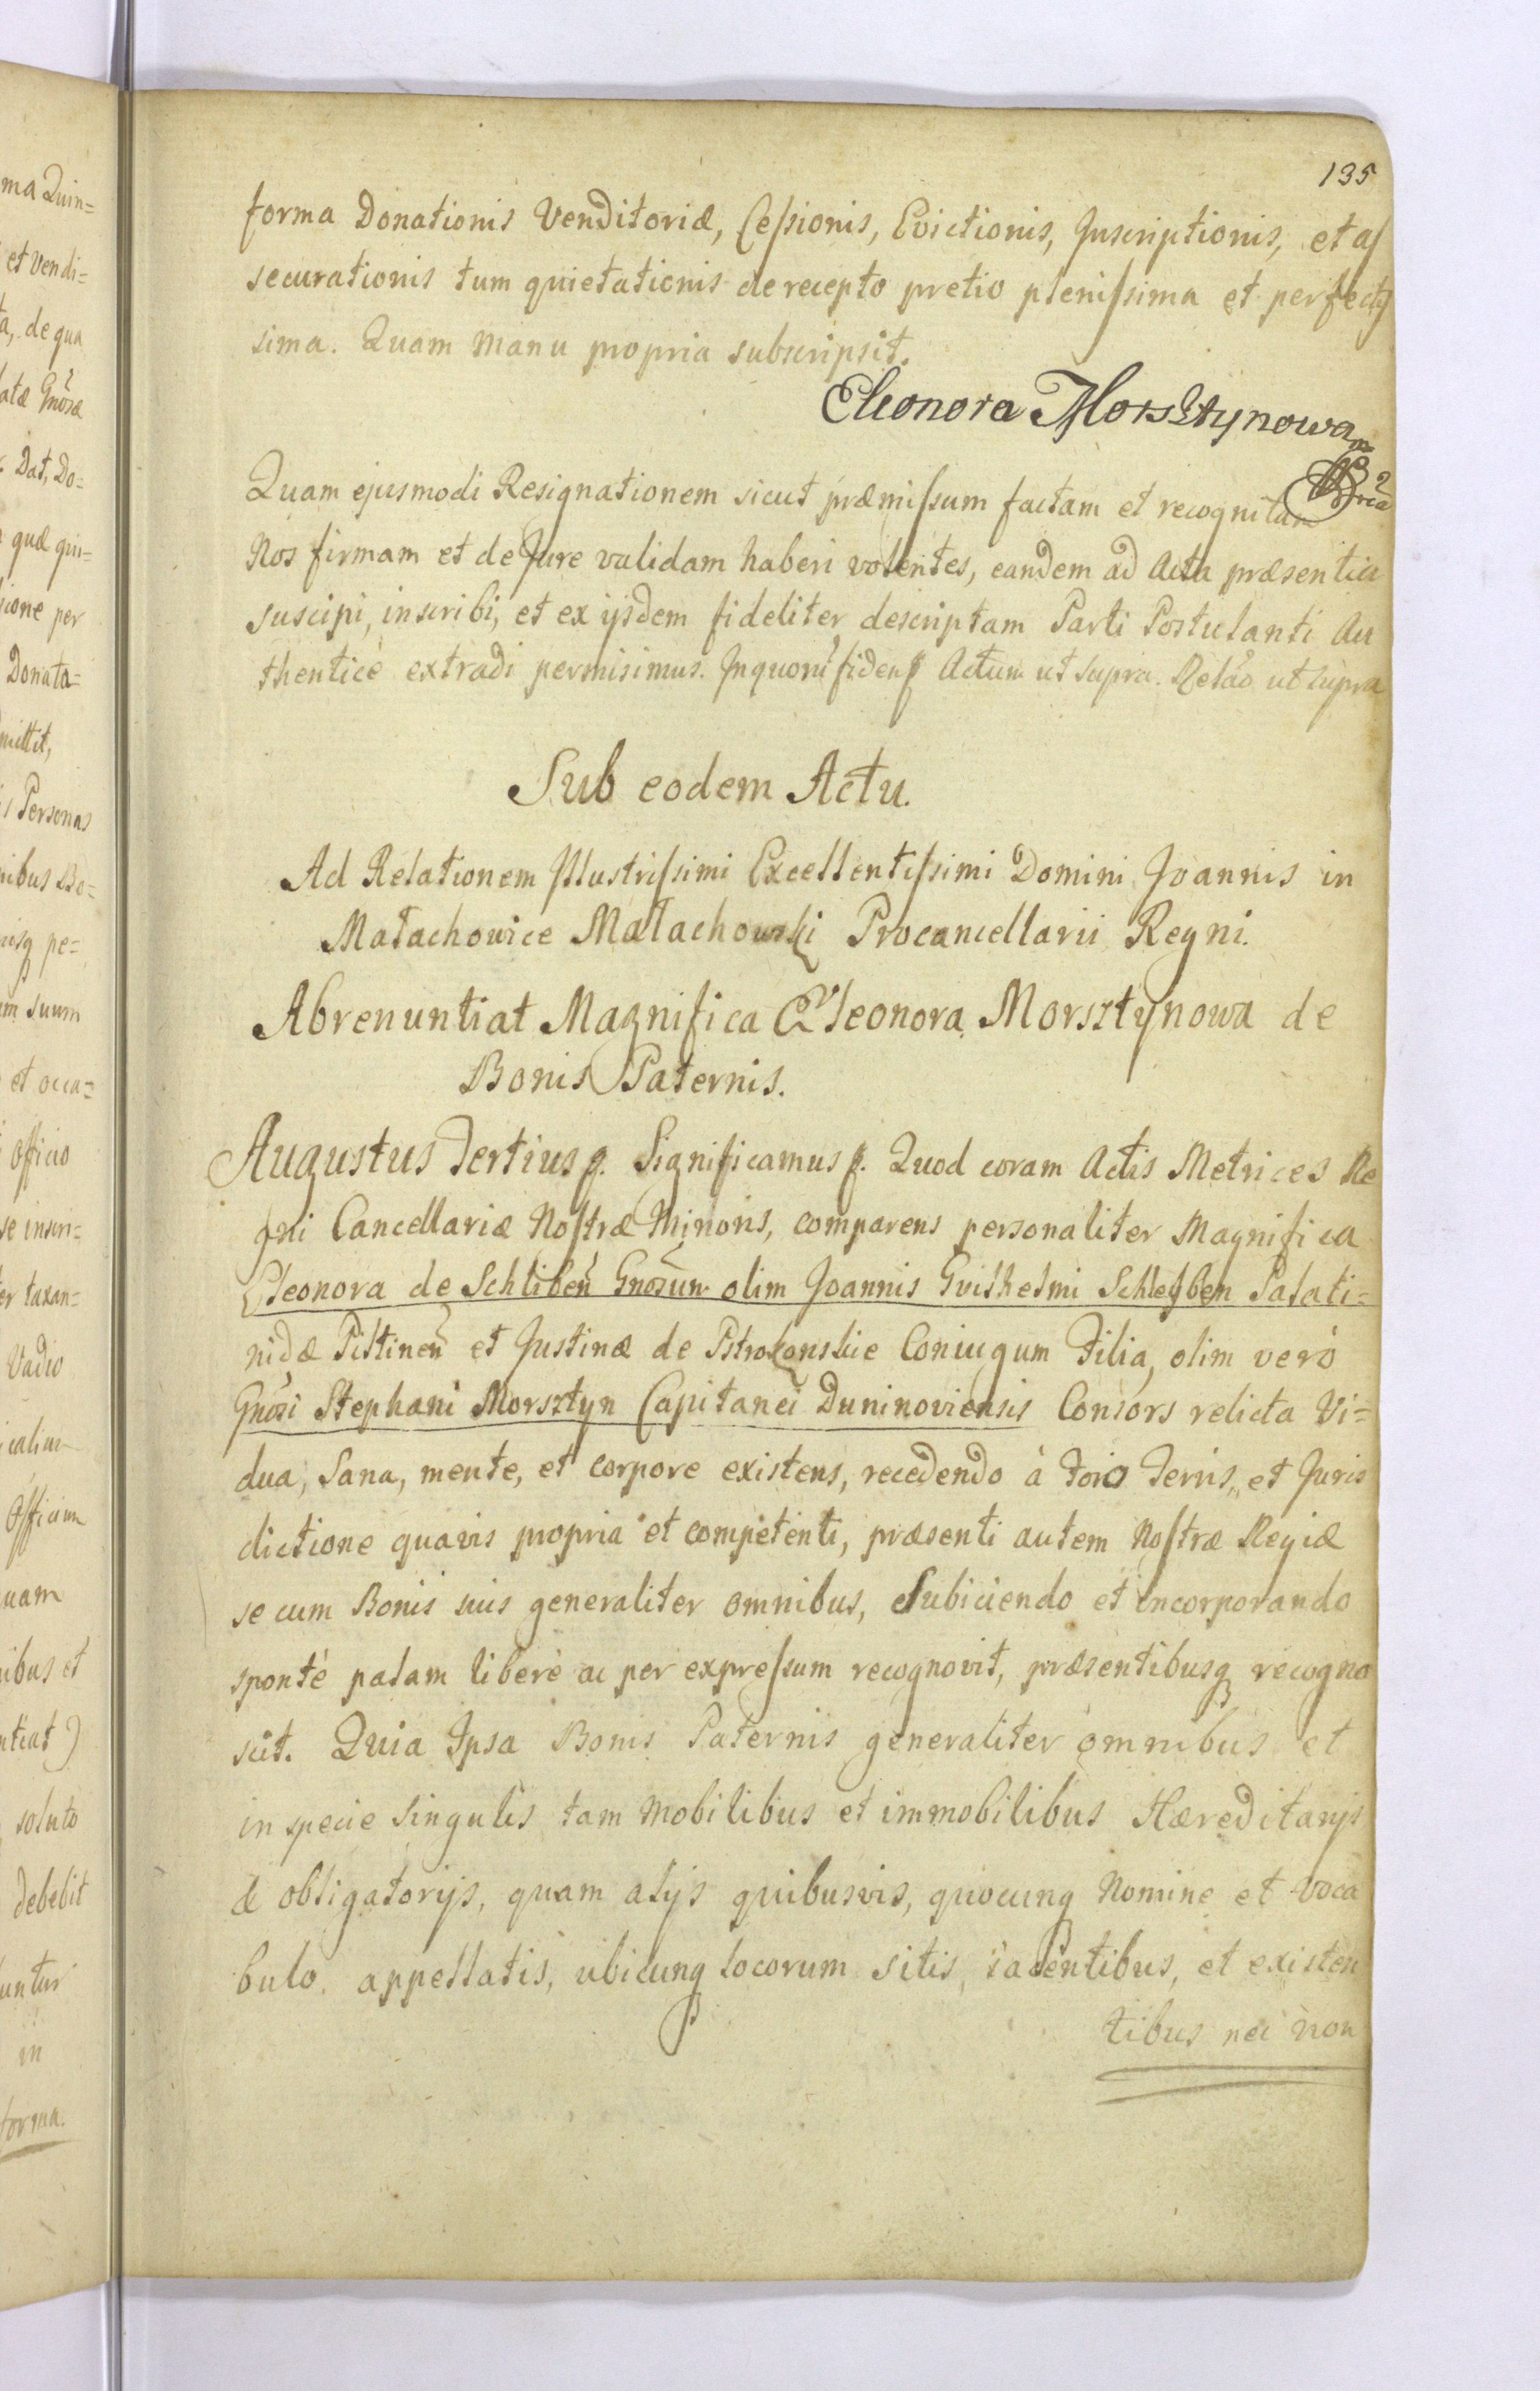 135
forma Donationis Venditoriæ, Cessionis, Evictionis, Inscriptionis, et as
securationis tum quietationis de recepto pretio plenissima et perfectis
sima. Quam manu propria subscripsit.
Eleonora Morsztynowa
Quam ejusmodi Resignationem sicut præmissum factam et recognitam
Nos firmam et de Jure validam haberi volentes, eandem ad Acta præsentia
suscipi, inscribi, et ex ijsdem fideliter descriptam Parti Postulanti Au
thenticè extradi permisimus. In quorũ fidem Actum ut supra. Relaõ ut supra
Sub eodem Actu.
Ad Relationem Illustrissimi Excellentissimi Domini Joannis in
Małachowice Małachowski Procancellarii Regni.
Abrenuntiat Magnifica Eleonora Morsztynowa de
Bonis Paternis.
Augustus Tertius Significamus Quod coram Actis Metrices Re
gni Cancellariæ Nostræ Minoris, comparens personaliter Magnifica
Eleonora de Schlibeñ Gnosũm olim Joannis Guilhelmi Schlejben Palati=
nidæ Piltineñ et Justinæ de Pstrokonskie Coniugum Filia, olim verò
Gnõsi Stephani Morsztyn Capitanei Duninoviensis Consors relicta Vi=
dua, Sana, mente, et corpore existens, recedendo à Foro Terris, et Juris
dictione quavis propria et competenti, præsenti autem Nostræ Regiæ
se cum Bonis suis generaliter omnibus, Subiciendo et incorporando
spontè palam liberè ac per expressum recognovit, præsentibusq recogno
scit. Quia Ipsa Bonis Paternis generaliter omnibus et
in specie Singulis tam mobilibus et immobilibus Hæreditarijs
& obligatorijs, quam alijs quibusvis, quocunq Nomine et voca
bulo appellatis, ubicunq locorum sitis, iacentibus, et existen
tibus nec non